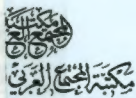 مكتبة المجتمع العربي
مكتبة المجتمع العربي